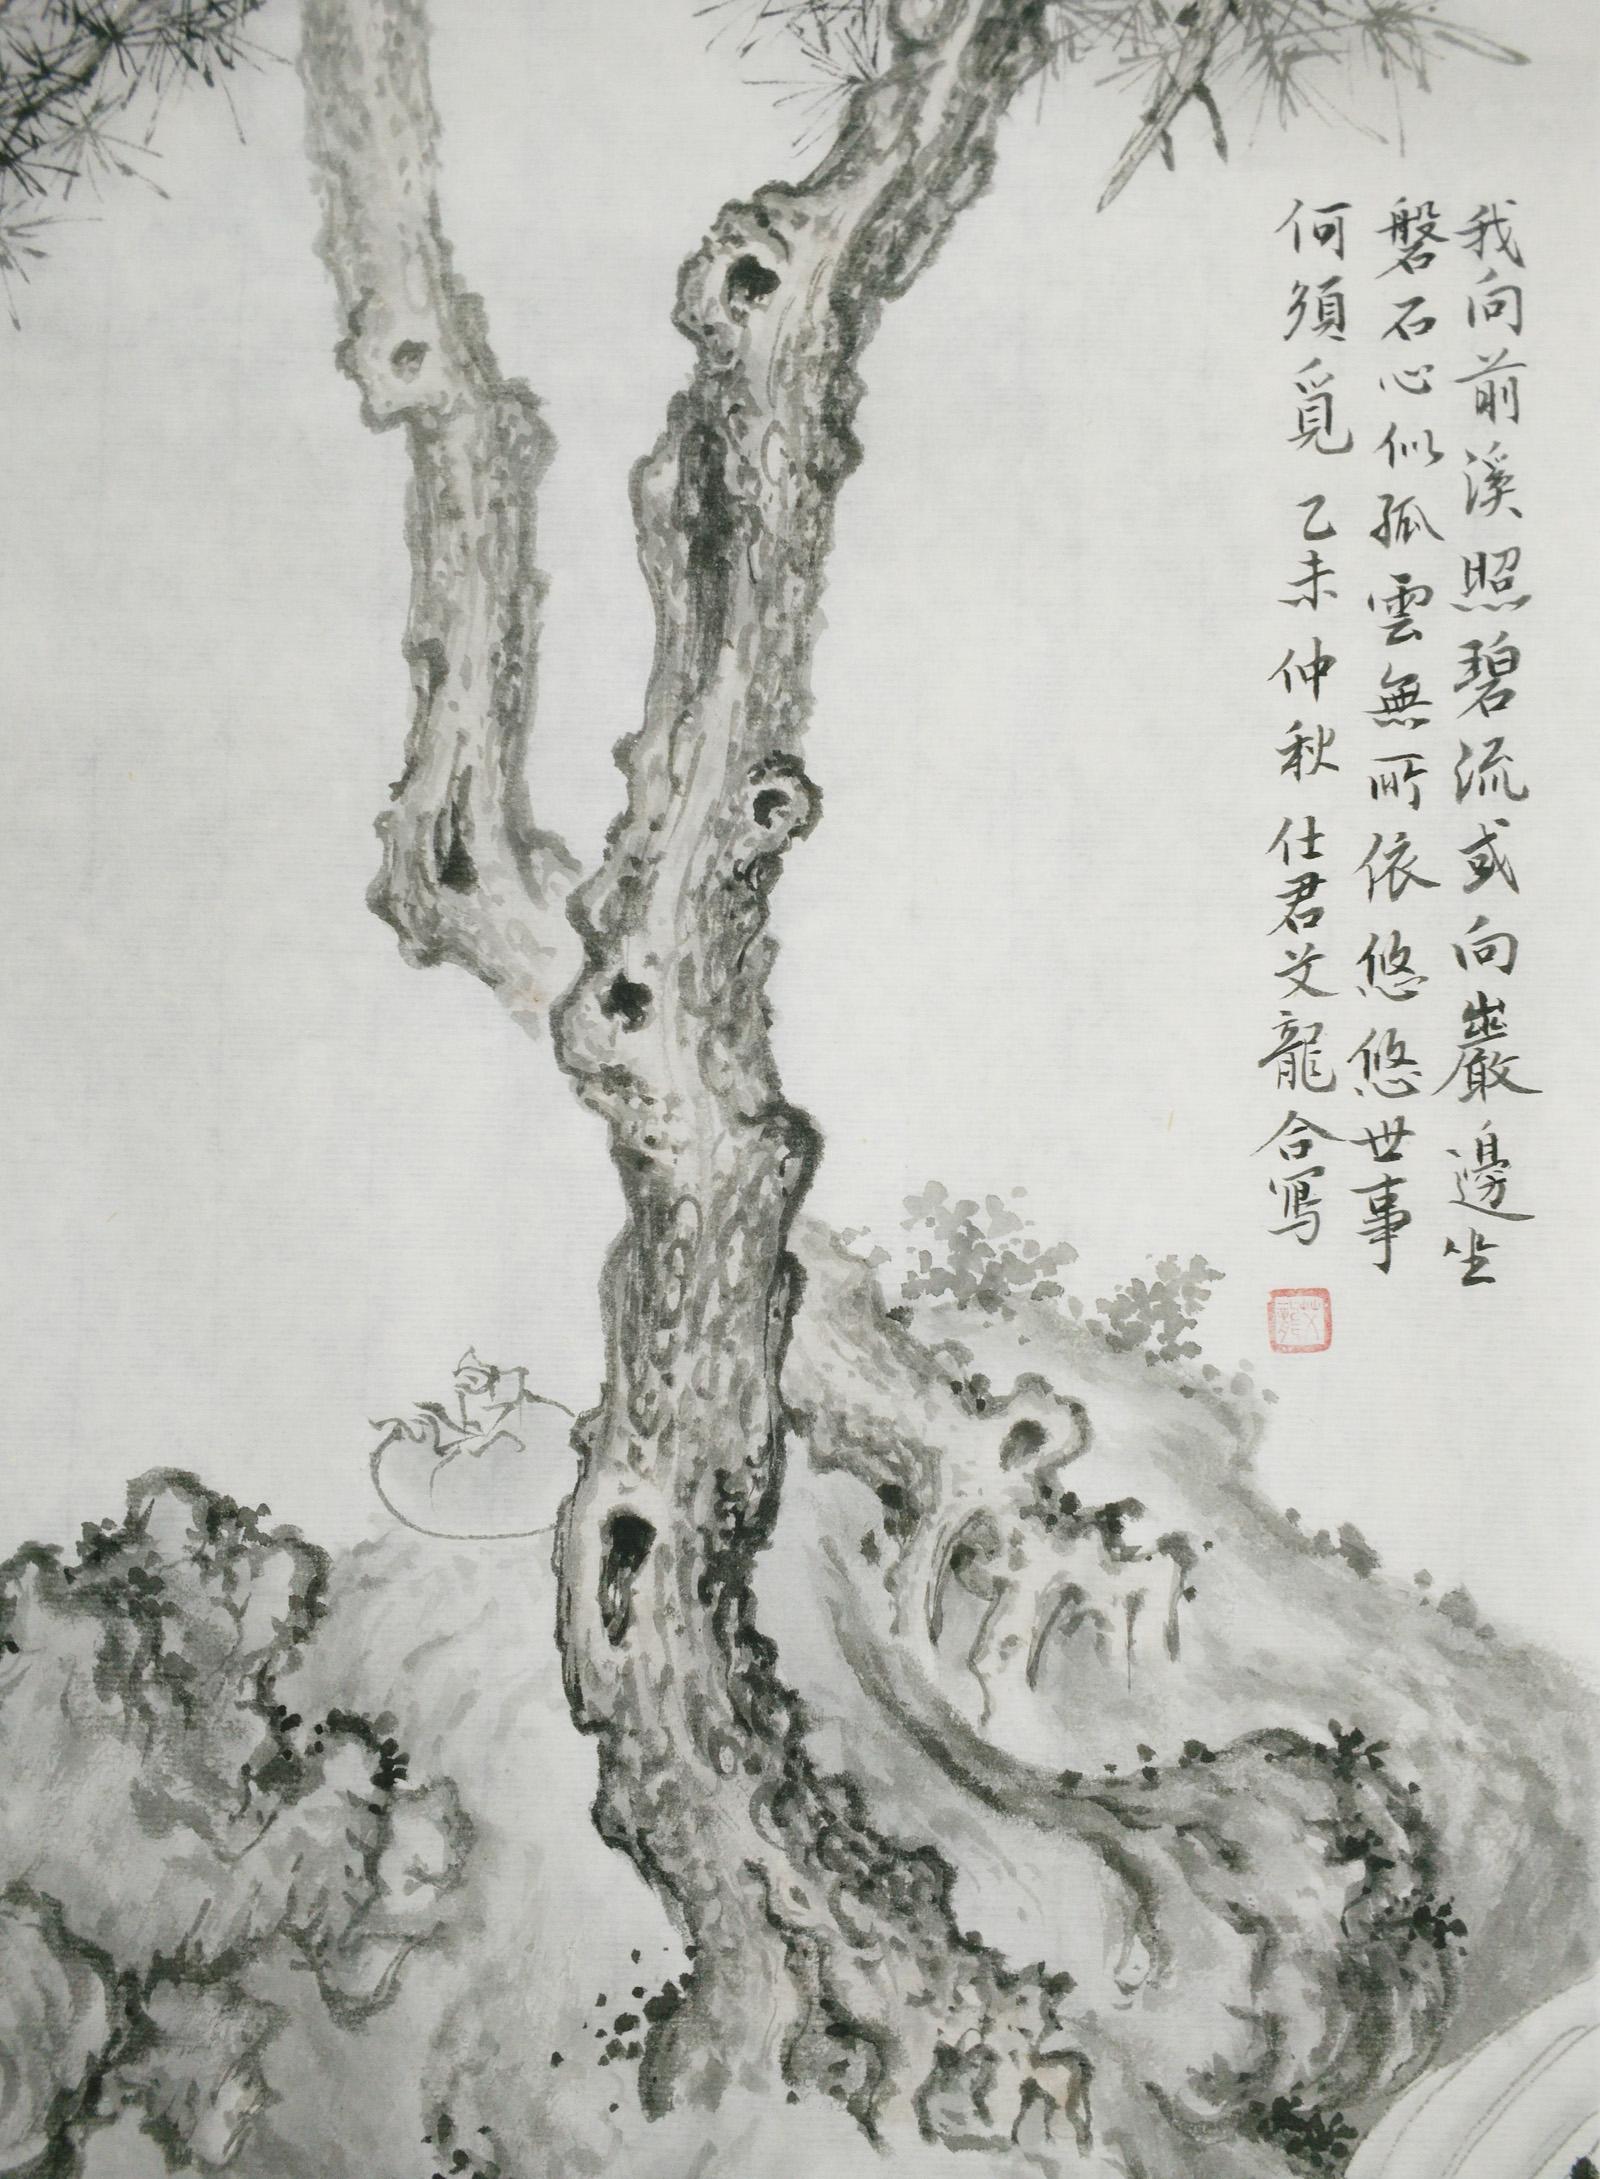 我向前溪照碧流或向巖邊坐
磐石心似孤雲無所依悠悠世事
何須覓 乙未仲秋 仕君艾龍合寫
艾龍